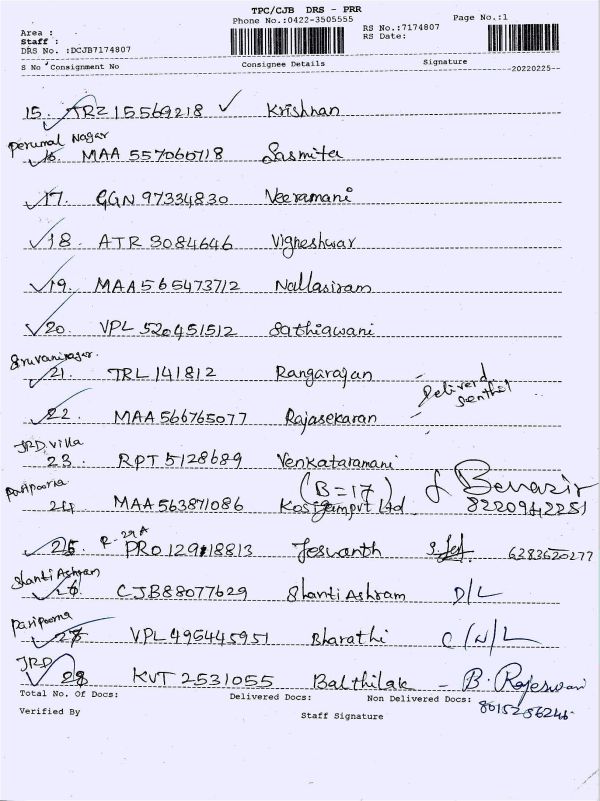 TPC/CJB DRS - PRR
Phone No.:0422-3505555
Page No.:1
RS No.:7174807
RS Date:
Area :
Staff :
DRS No. :DCJB7174807
S No Consignment No Consignee Details Signature
20220225--
15. ATRZ 15569218 ✓ Krishnan
Perumal Nagar
16. MAA 557060718 Sasmita
17. GGN 97334830 Veeramani
18. ATR 9084646 Vigneshwar
19. MAA 565473712 Nallasivam
20. VPL 520451512 Sathiawani
Siruvani nagar.
21. TRL 141812 Rangarajan
Deliverd
Senthil
22. MAA 566765077 Rajasekaran
JRD Villa
23 RPT 5128689 Venkataramani
Paripoorna
(B=17) Benazir
24 MAA 563871086 Pvt Ltd. 8220942251
25 R-29A PRO 129118813 Jeswanth 6383620277
Shanti Ashram
26 CJB88077629 Shanti Ashram D/L
Paripoorna
27 VPL 495445951 Bharathi C/N/L
JRD
28 KVT 2531055 Balthilak - B. Rajeswari
8015256246
Total No. Of Docs: Delivered Docs: Non Delivered Docs:
Verified By Staff Signature